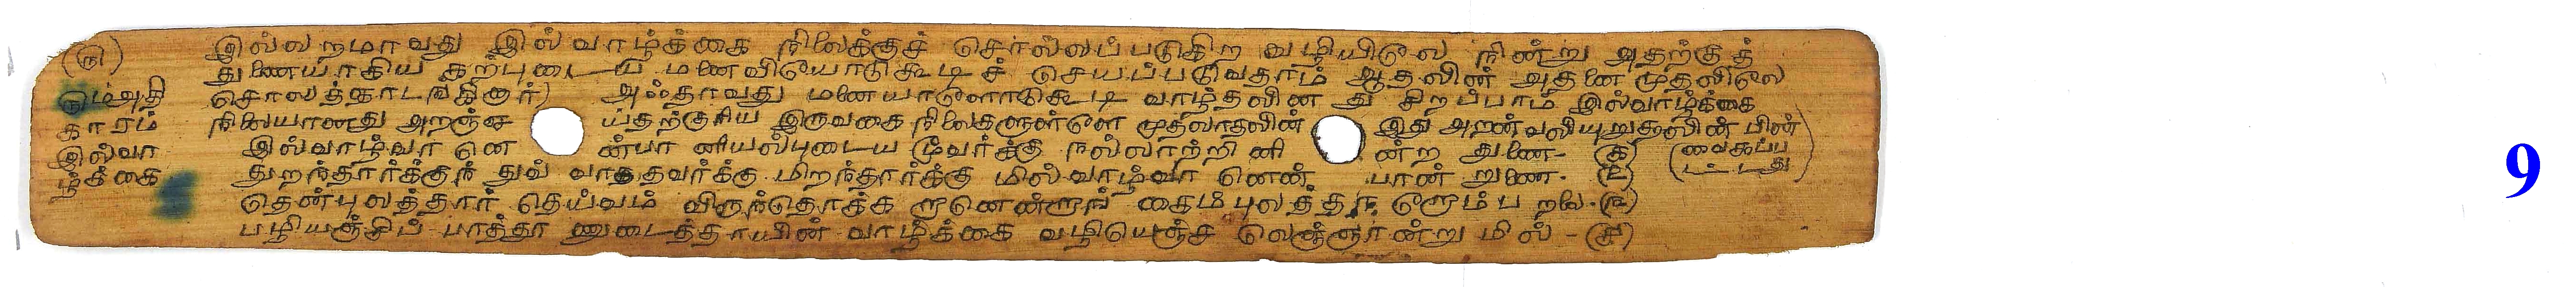 (ரு) இல்லறமாவது இல்வாழ்க்கை நிலைக்குச் சொல்லப்படுகிற வழியிலே நின்று அதற்குத்
துணையாகிய கற்புடைய மனைவியோடுகூடிச் செயப்படுவதாம் ஆதலின் அதனை முதலிலே
ரும்அதி சொலத்தொடங்கினார்) அஃதாவது மனையாளோடுகூடி வாழ்தலினது சிறப்பாம் இல்வாழ்க்கை
காரம் நிலையானது அறஞ்செ ய்தற்குரிய இருவகை நிலைகளுள்ளே முதலாதலின் இது அறன்வலியுறுதலின் பின்
இல்வா இல்வாழ்வா னென் ன்பா னியல்புடைய மூவர்க்கு நல்லாற்றி னி ன்ற துணை- (க) (வைகப்ப
ழ்க்கை துறந்தார்க்குந் துவ் வாதவர்க்கு மிறந்தார்க்கு மில்வாழ்வா னென் பான் றுணை- (உ) ட்டது)
தென்புலத்தார் தெய்வம் விருந்தொக்க றானென்றாங் கைம்புலத்தா றோம்ப றலை-(ங)
பழியஞ்சிப் பாத்தூ ணுடைத்தாயின் வாழ்க்கை வழியெஞ்ச லெஞ்ஞான்று மில் - (ச)
9